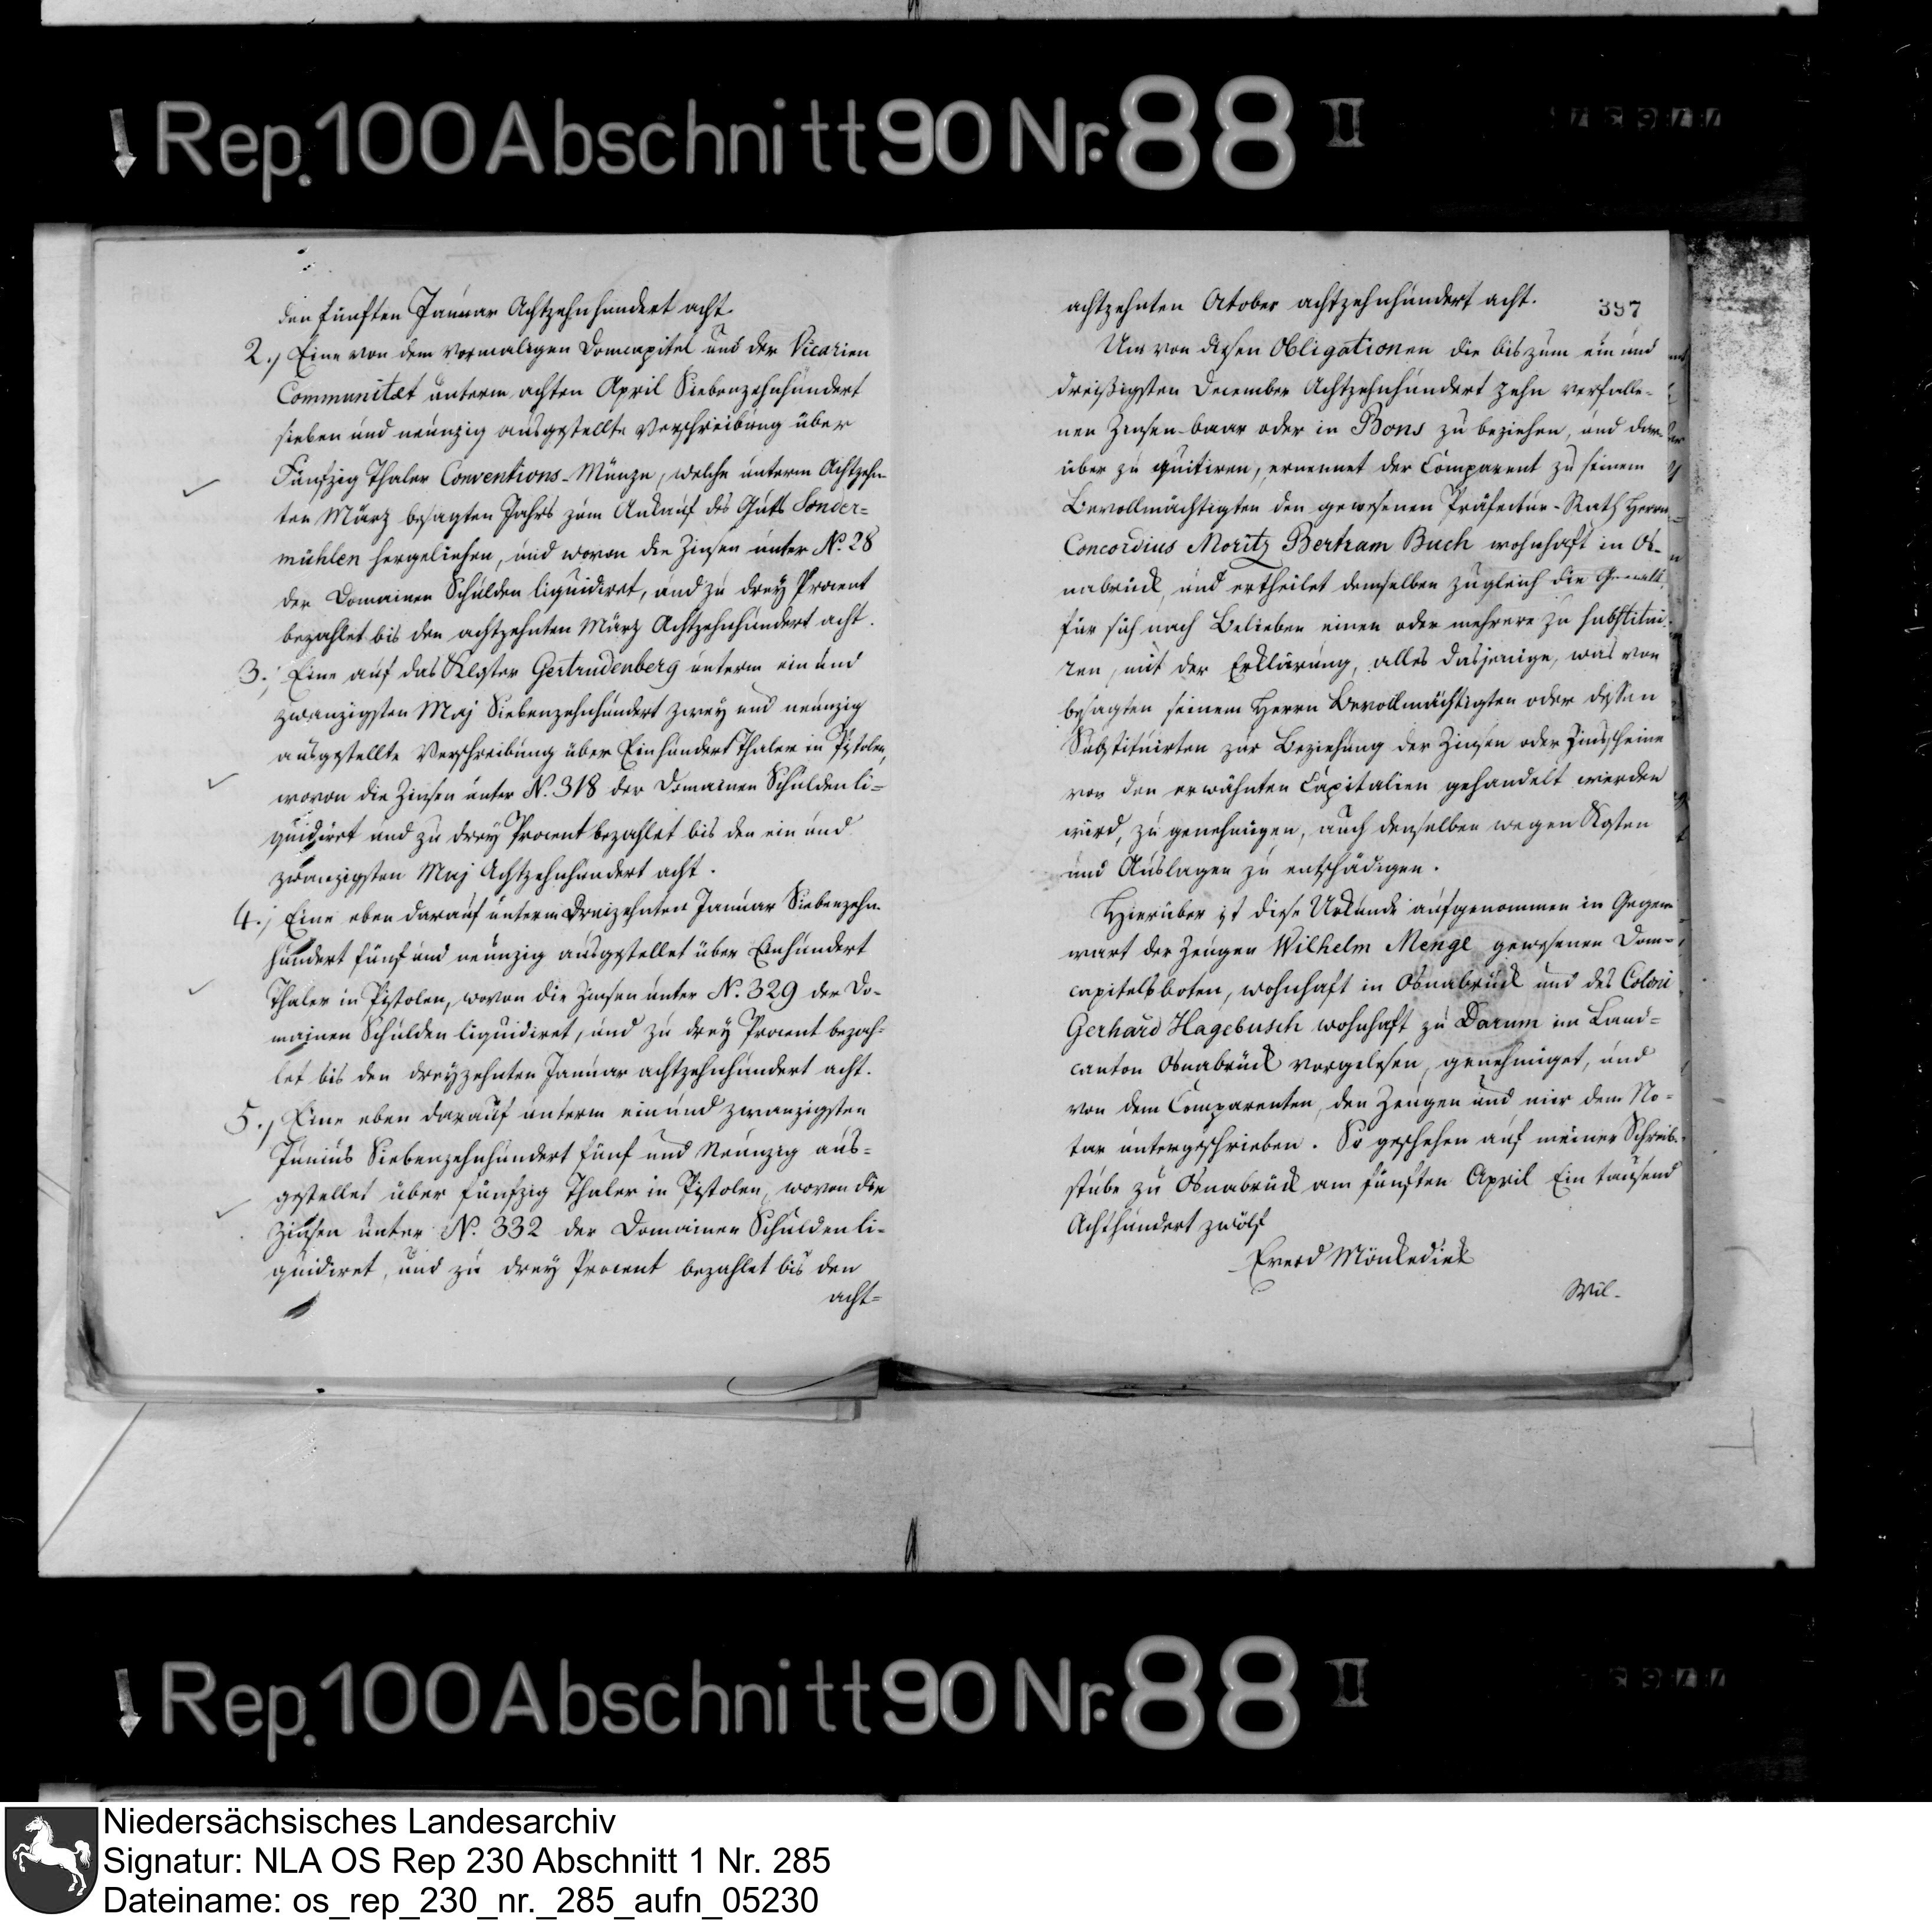 Rep. 100 Abschnitt 90 Nr. 88 II
den fünften Januar Achtzehnhundert acht.
2.) Eine von dem vormaligen Domcapitel und der Vicarien
Communitæt unterm achten April Siebenzehnhundert
sieben und neunzig ausgestellte Verschreibung über
Fünfzig Thaler Conventions-Münze, welche unterm Achtzehn-
ten März besagten Jahrs zum Ankauf des Guts Sonder=
mühlen hergeliehen, und wovon die Zinsen unter N. 28
der Domainen Schulden liquidiret, und zu drey Procent
bezahlet bis den achtzehnten März Achtzehnhundert acht.
3.) Eine auf das Kloster Gertrudenberg unterm ein und
zwanzigsten Maj Siebenzehnhundert zwey und neunzig
ausgestellte Verschreibung über Einhundert Thaler in Pistolen,
wovon die Zinsen unter N. 318 der Domainen Schulden li=
quidiret und zu drey Procent bezahlet bis den ein und
zwanzigsten Maj Achtzehnhundert acht.
4.) Eine eben darauf unterm Dreizehnten Januar Siebenzehn-
hundert fünf und neunzig ausgestellet über Einhundert
Thaler in Pistolen, wovon die Zinsen unter N. 329 der Do-
mainen Schulden liquidiret, und zu drey Procent bezah-
let bis den dreyzehnten Januar achtzehnhundert acht.
5.) Eine eben darauf unterm ein und zwanzigsten
Junius Siebenzehnhundert fünf und Neunzig aus=
gestellet über fünfzig Thaler in Pistolen, wovon die
Zinsen unter N. 332 der Domainen Schulden li-
quidiret, und zu drey Procent bezahlet bis den
acht=
397
achtzehnten October achtzehnhundert acht.
Um von diesen Obligationen die bis zum ein und
dreißigsten December Achtzehnhundert zehn verfalle-
nen Zinsen baar oder in Bons zu beziehen, und dar-
über zu quitiren, ernennet der Comparent zu seinem
Bevollmächtigten den gewesenen Präfectur-Rath Herrn
Concordius Moritz Bertram Buch wohnhaft in Os-
nabrück, und ertheilet demselben zugleich die Gewalt
für sich nach Belieben einen oder mehrere zu substitui-
ren, mit der Erklärung, alles dasjenige, was von
besagten seinem Herrn Bevollmächtigten oder dessen
Substituirten zur Beziehung der Zinsen oder Zinsscheine
von den erwähnten Capitalien gehandelt werden
wird, zu genehmigen, auch denselben wegen Kosten
und Auslagen zu entschädigen.
Hierüber ist diese Urkunde aufgenommen in Gegen-
wart der Zeugen Wilhelm Menge gewesenen Dom-
capitelsboten, wohnhaft in Osnabrück und des Coloni
Gerhard Hagebusch wohnhaft zu Darum im Land=
canton Osnabrück vorgelesen, genehmiget, und
von dem Comparenten, den Zeugen und mir dem No-
tar untergeschrieben. So geschehen auf meiner Schreib-
stube zu Osnabrück am fünften April Ein tausend
Achthundert zwölf
Everd Mönkediek
Wil-
Rep. 100 Abschnitt 90 Nr. 88 II
Niedersächsisches Landesarchiv
Signatur: NLA OS Rep 230 Abschnitt 1 Nr. 285
Dateiname: os_rep_230_nr._285_aufn_05230